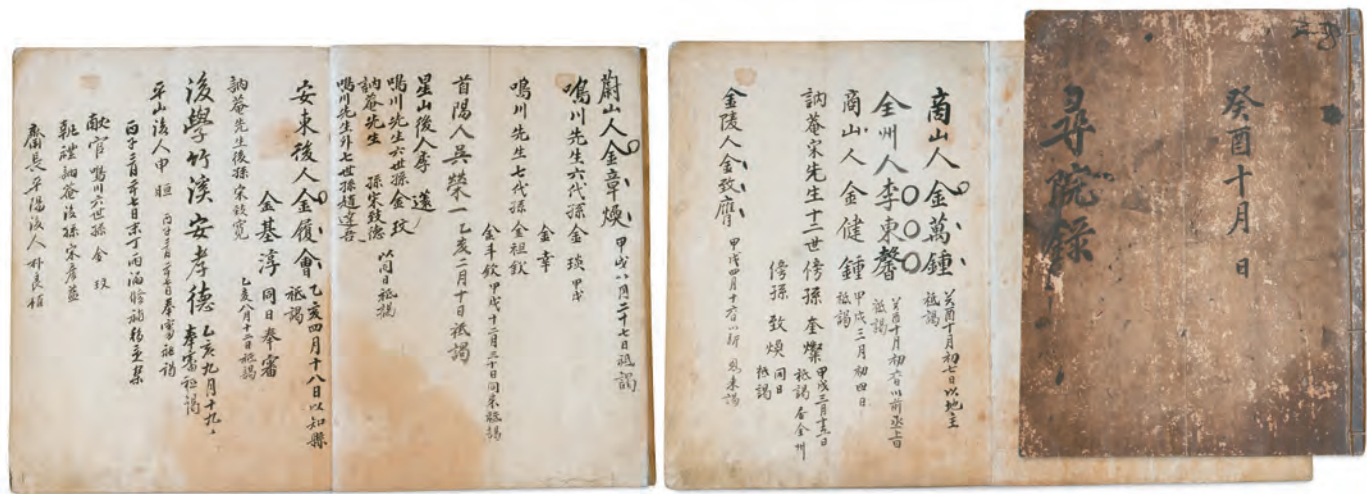 癸酉十月 日
尋院錄
商山人金萬鍾 癸酉十月初七日以地主祗謁
全州人李東馨 癸酉十月初 日以前 祗謁
商山人金健鍾 甲戌三月初四日祗謁
訥菴宋先生十二世傍孫奎燦 甲戌三月 日祗謁 居全州
傍孫致煥 同日祗謁
金陵人金致 甲戌四月十 日以 來謁
蔚山人金章煥 甲戌八月二十七日祗謁
鳴川先生六代孫金琰 甲戌
金
鳴川先生七代孫金祖欽
金斗欽 甲戌十二月三十日同來祗謁
首陽人吳榮一 乙亥二月十日祗謁
星山後人李
鳴川先生六世孫金玟
訥菴先生 孫宋致德 以同日祗謁
鳴川先生外七世孫趙
安東後人金履會 乙亥四月十八日以知縣祗謁
金基淳 同日奉審
訥菴先生後孫宋致寬 乙亥八月十二日祗謁
後學竹溪安孝德 乙亥九月十九日奉審祗謁
平山後人申 丙子三月二十七日奉審祗謁
丙子三月二十七日
獻官鳴川六世孫金玟
執禮訥菴後孫宋彦
齋長平陽後人朴良